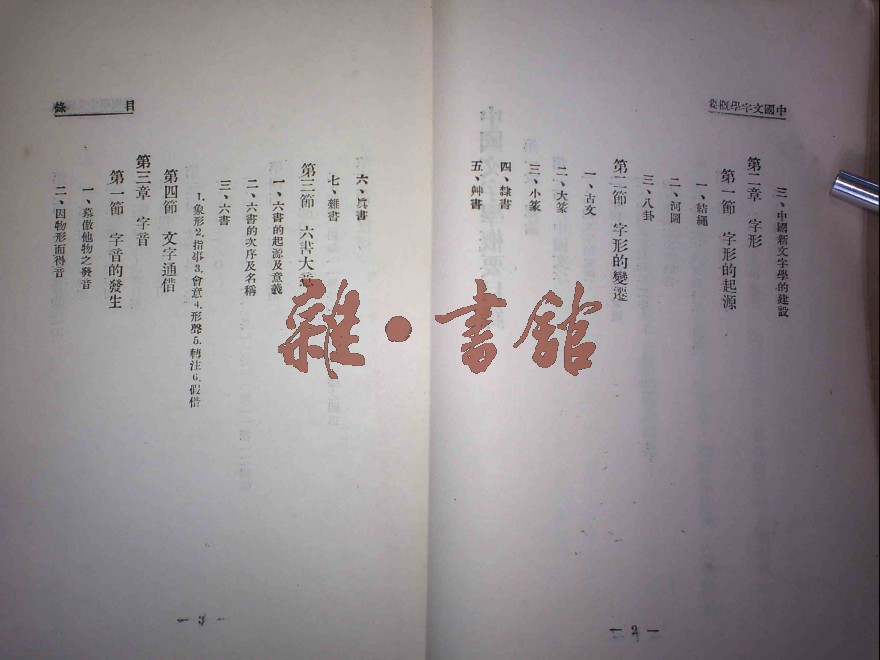 中國文字學概要
三、中國新文字學的建設
第二章 字形
第一節 字形的起源
一、結繩
二、河圖
三、八卦
第二節 字形的變遷
一、古文
二、大篆
三、小篆
四、隸書
五、艸書
— 2 —
目錄
六、眞書
七、雜書
第三節 六書大意
一、六書的起源及意義
二、六書的次序及名稱
三、六書
1.象形2.指事3.會意4.形聲5.轉注6.假借
第四節 文字通借
第三章 字音
第一節 字音的發生
一、摹倣他物之發音
二、因物形而得音
— 3 —
雜·書館